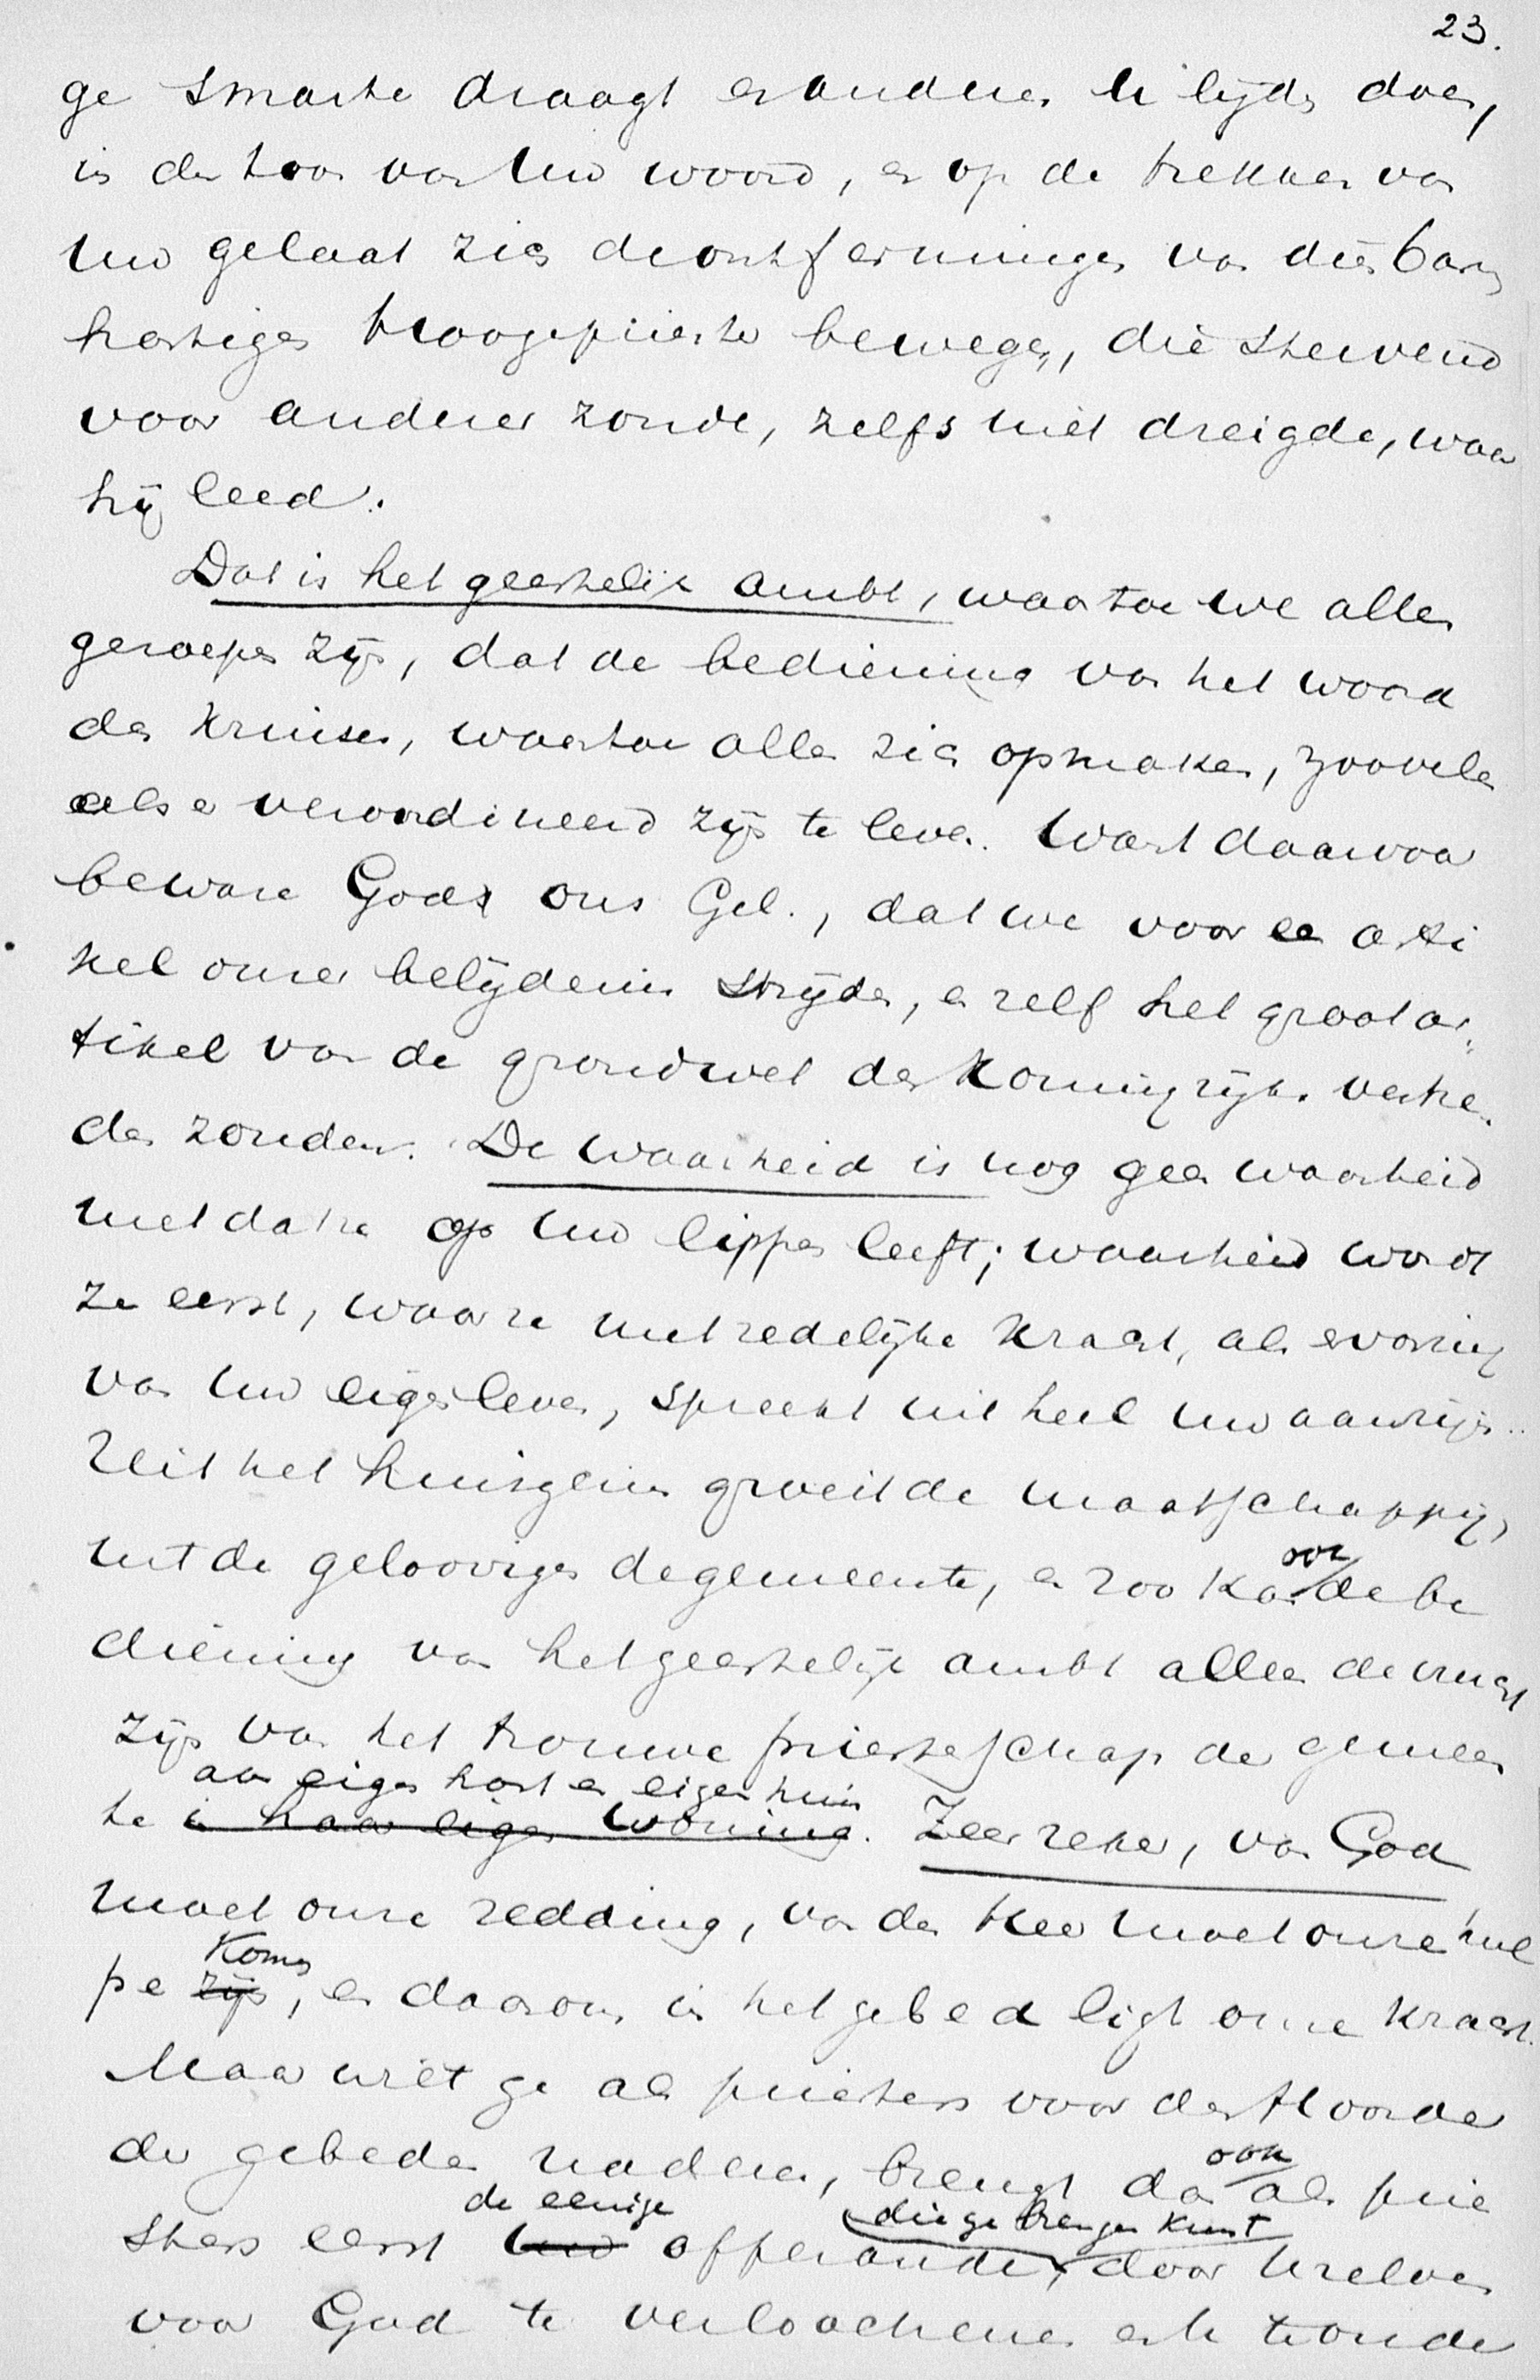 23.
ge smarte draagt en anderen U lijden doen,
in den toon van Uw woord, en op de trekken van
Uw gelaat zich de ontferminge van dien barm
hartigen Hoogepriester bewegen, die stervend
voor anderer zonde, zelfs niet dreigde, waar
hij leed.
Dat is het geestelijk ambt, waartoe we allen
geroepen zijn, dat de bediening van het woord
des Kruises, waartoe allen zich opmaken, zoovelen
als er verordineerd zijn te leven. Want daarvoor
beware God ons Gel., dat we voor een arti
kel onzer belijdenis strijden, en zelf het groot ar-
tikel van de grondwet des Koningrijks vertre-
den zouden. De waarheid is nog geen waarheid
met dat ze op Uw lippen leeft; waarheid wordt
ze eerst, waar ze met zedelijke kracht, als ervaring
van Uw eigen leven, spreekt uit heel Uw aanzijn..
Uit het huisgezin groeit de maatschappij,
uit de geloovigen de gemeente, en zoo kan ook de be
diening van het geestelijk ambt alleen de vrucht
zijn van het trouwe priesterschap der gemeen
aan eigen hart en eigen huis
te in haar eigen woning. Zeer zeker, van God
moet onze redding, van den Heer moet onze hul
pe zijn komen, en daarom in het gebed ligt onze kracht.
Maar wilt ge als priesters voor den Hoorder
der gebeden naderen, brengt dan ook als prie
sters eerst Uw de eenige offerande, die ge brengen kunt door U zelven
voor God te verloochenen en te troonde